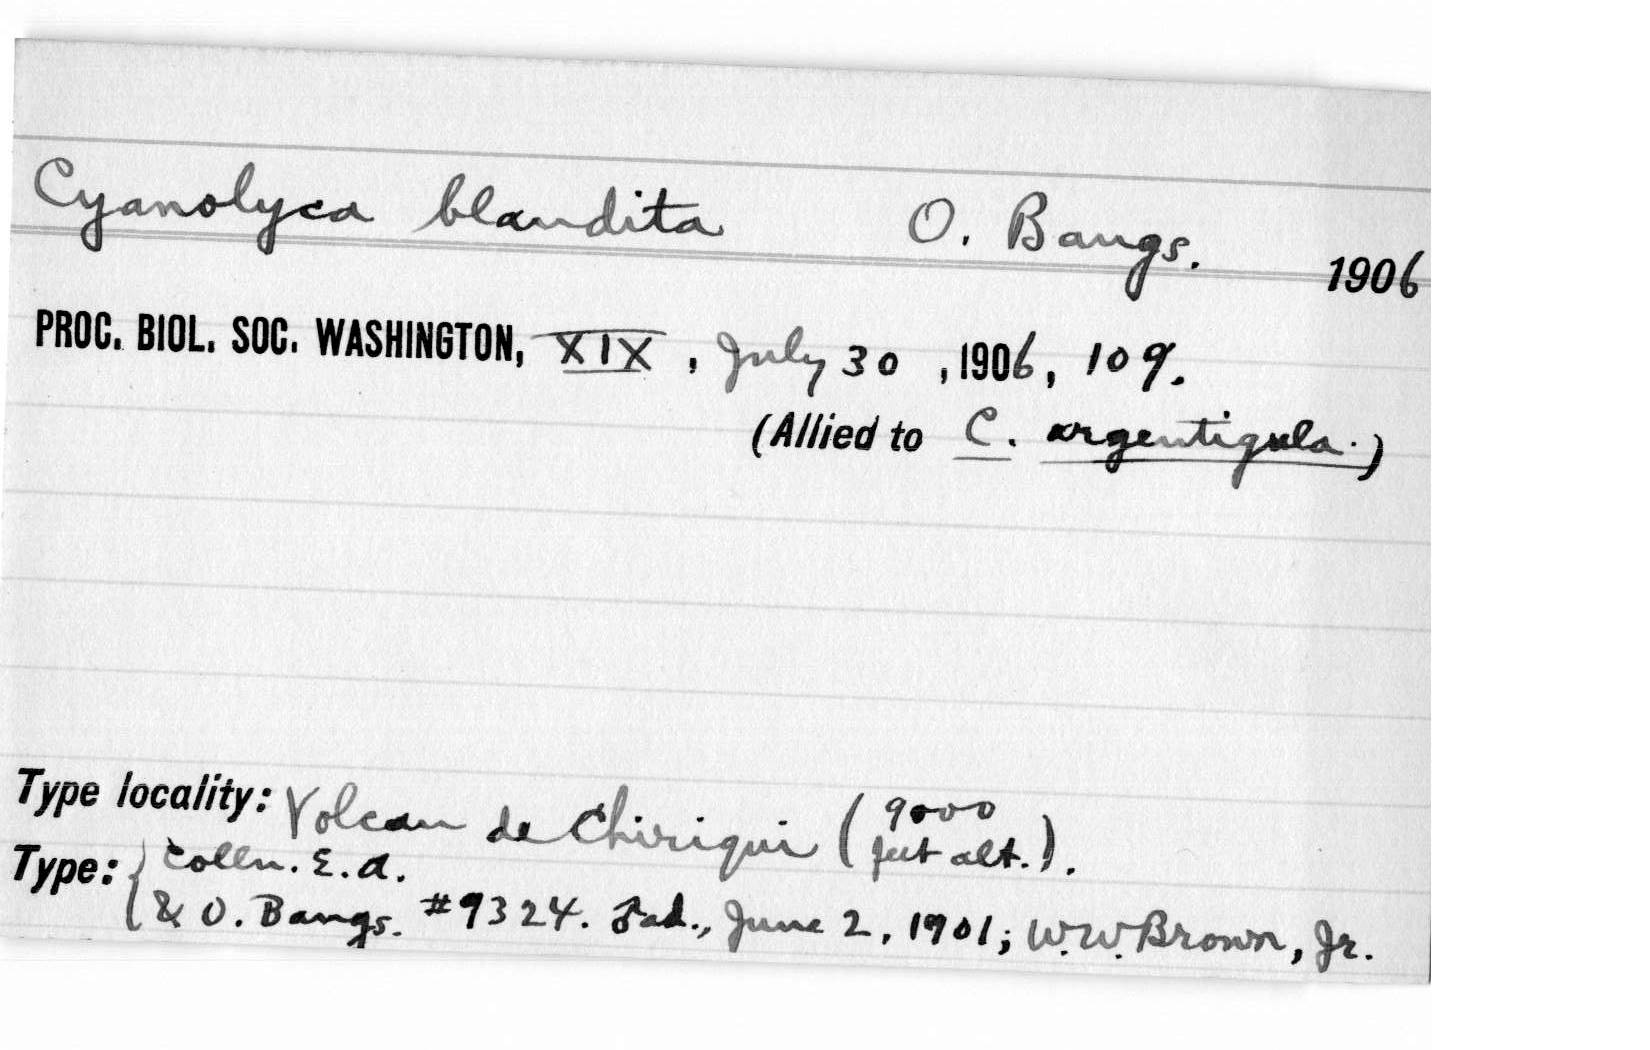 Cyanolyca blandita O. Bangs. 1906
PROC. BIOL. SOC. WASHINGTON, XIX, July 30, 1906, 109.
(Allied to C. argentigula.)
Type locality: Volcan de Chiriqui (9000
feet alt.).
Type: { Colln. E. A.
& O. Bangs. #9324. ♂ad., June 2, 1901; W.W. Brown, Jr.